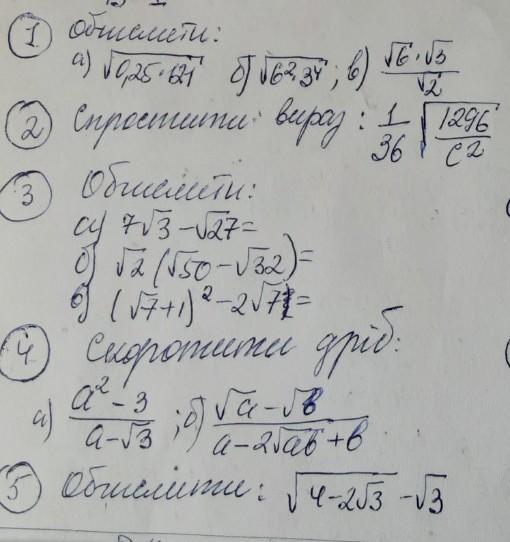 1 Обчислити:
а) √0,25·121 б) √6²·3⁴; в) √6·√3/√2
2 Спростити вираз: 1/36 √1296/c²
3 Обчислити:
а) 7√3-√27=
б) √2(√50-√32)=
в) (√7+1)²-2√7=
4 Скоротити дріб:
а) a²-3/a-√3; б) √a-√b/a-2√ab+b
5 Обчислити: √4-2√3-√3